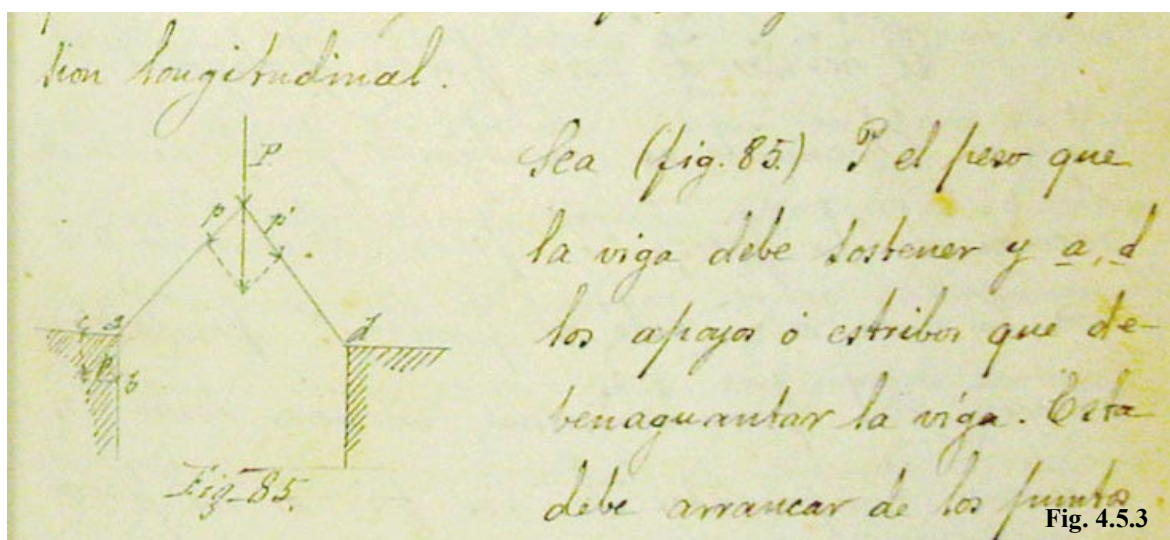 sion longitudinal.
Sea (fig. 85.) P el peso que
la viga debe sostener y a, d
los apoyos ó estribos que de-
benaguantar la viga. Esta
debe arrancar de los puntos
P
p p'
c a d
p b
Fig-85.
Fig. 4.5.3